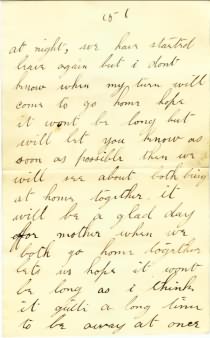 at night, we have started
leave again but i dont
know when my turn will
come to go home hope
it wont be long but
will let you know as
soon as possible then we
will see about both being
at home together. it
will be a glad day
for mother when we
both go home together
lets us hope it wont
be long as i think
it quite a long time
to be away at once